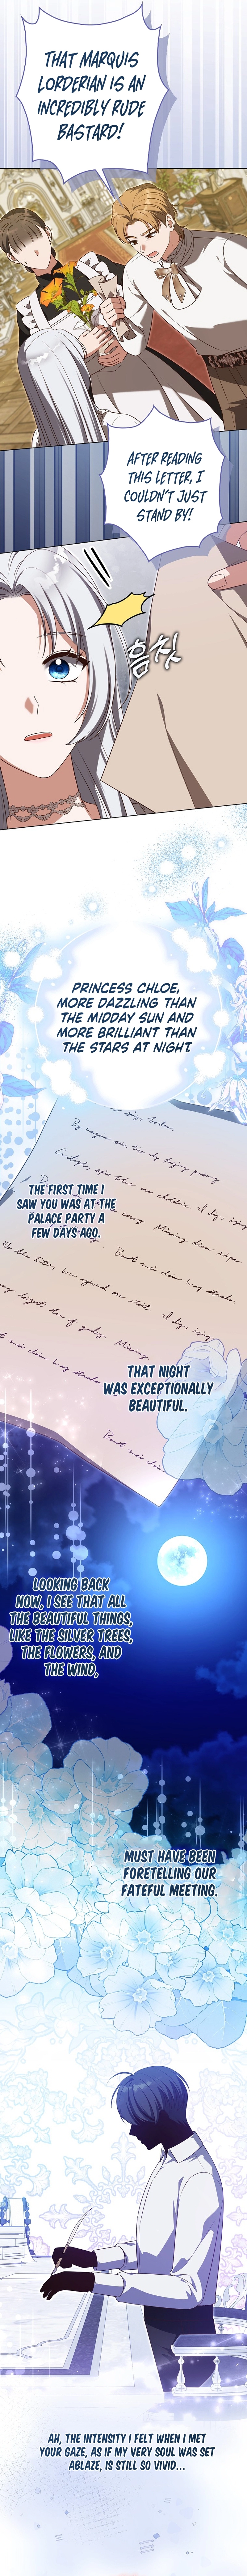 THAT MARQUIS
LORDERIAN IS AN
INCREDIBLY RUDE
BASTARD!
AFTER READING
THIS LETTER, I
COULDN'T JUST
STAND BY!
움찟
PRINCESS CHLOE,
MORE DAZZLING THAN
THE MIDDAY SUN AND
MORE BRILLIANT THAN
THE STARS AT NIGHT
THE FIRST TIME I
SAW YOU WAS AT THE
PALACE PARTY A
FEW DAYS AGO.
THAT NIGHT
WAS EXCEPTIONALLY
BEAUTIFUL.
LOOKING BACK
NOW, I SEE THAT ALL
THE BEAUTIFUL THINGS,
LIKE THE SILVER TREES,
THE FLOWERS, AND
THE WIND,
MUST HAVE BEEN
FORETELLING OUR
FATEFUL MEETING.
AH, THE INTENSITY I FELT WHEN I MET
YOUR GAZE, AS IF MY VERY SOUL WAS SET
ABLAZE, IS STILL SO VIVID...